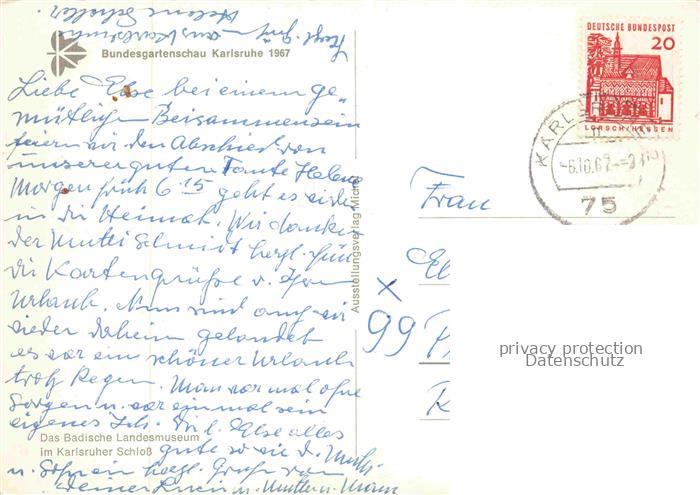 Herzl. Grüße aus Karlsruhe
Helene
Bundesgartenschau Karlsruhe 1967
Liebe Else bei einem ge-
mütlichen Beisammensein
feiern wir den Abschied von
unserer guten Tante Helene
Morgen früh 6 15 geht es
in die Heimat. Wir danken
der Mutti Schmidt herzl. für
die Kartengrüße v. Ihrem
Urlaub. Nun sind auch wir
wieder daheim gelandet
es war ein schöner Urlaub
trotz Regen. Man war mal ohne
Sorgen u. war einmal sein
eigenes Ich. Dir l. Else alles
Das Badische Landesmuseum
im Karlsruher Schloß
gute sowie d. Mutti
u. herzl. Grüße von
Deiner u. Mutter u. Mann
Ausstellungsverlag Michig
DEUTSCHE BUNDESPOST
20
LORSCH/HESSEN
KARLSRUHE
-6.10.67
75
Frau
El
99
privacy protection
Datenschutz